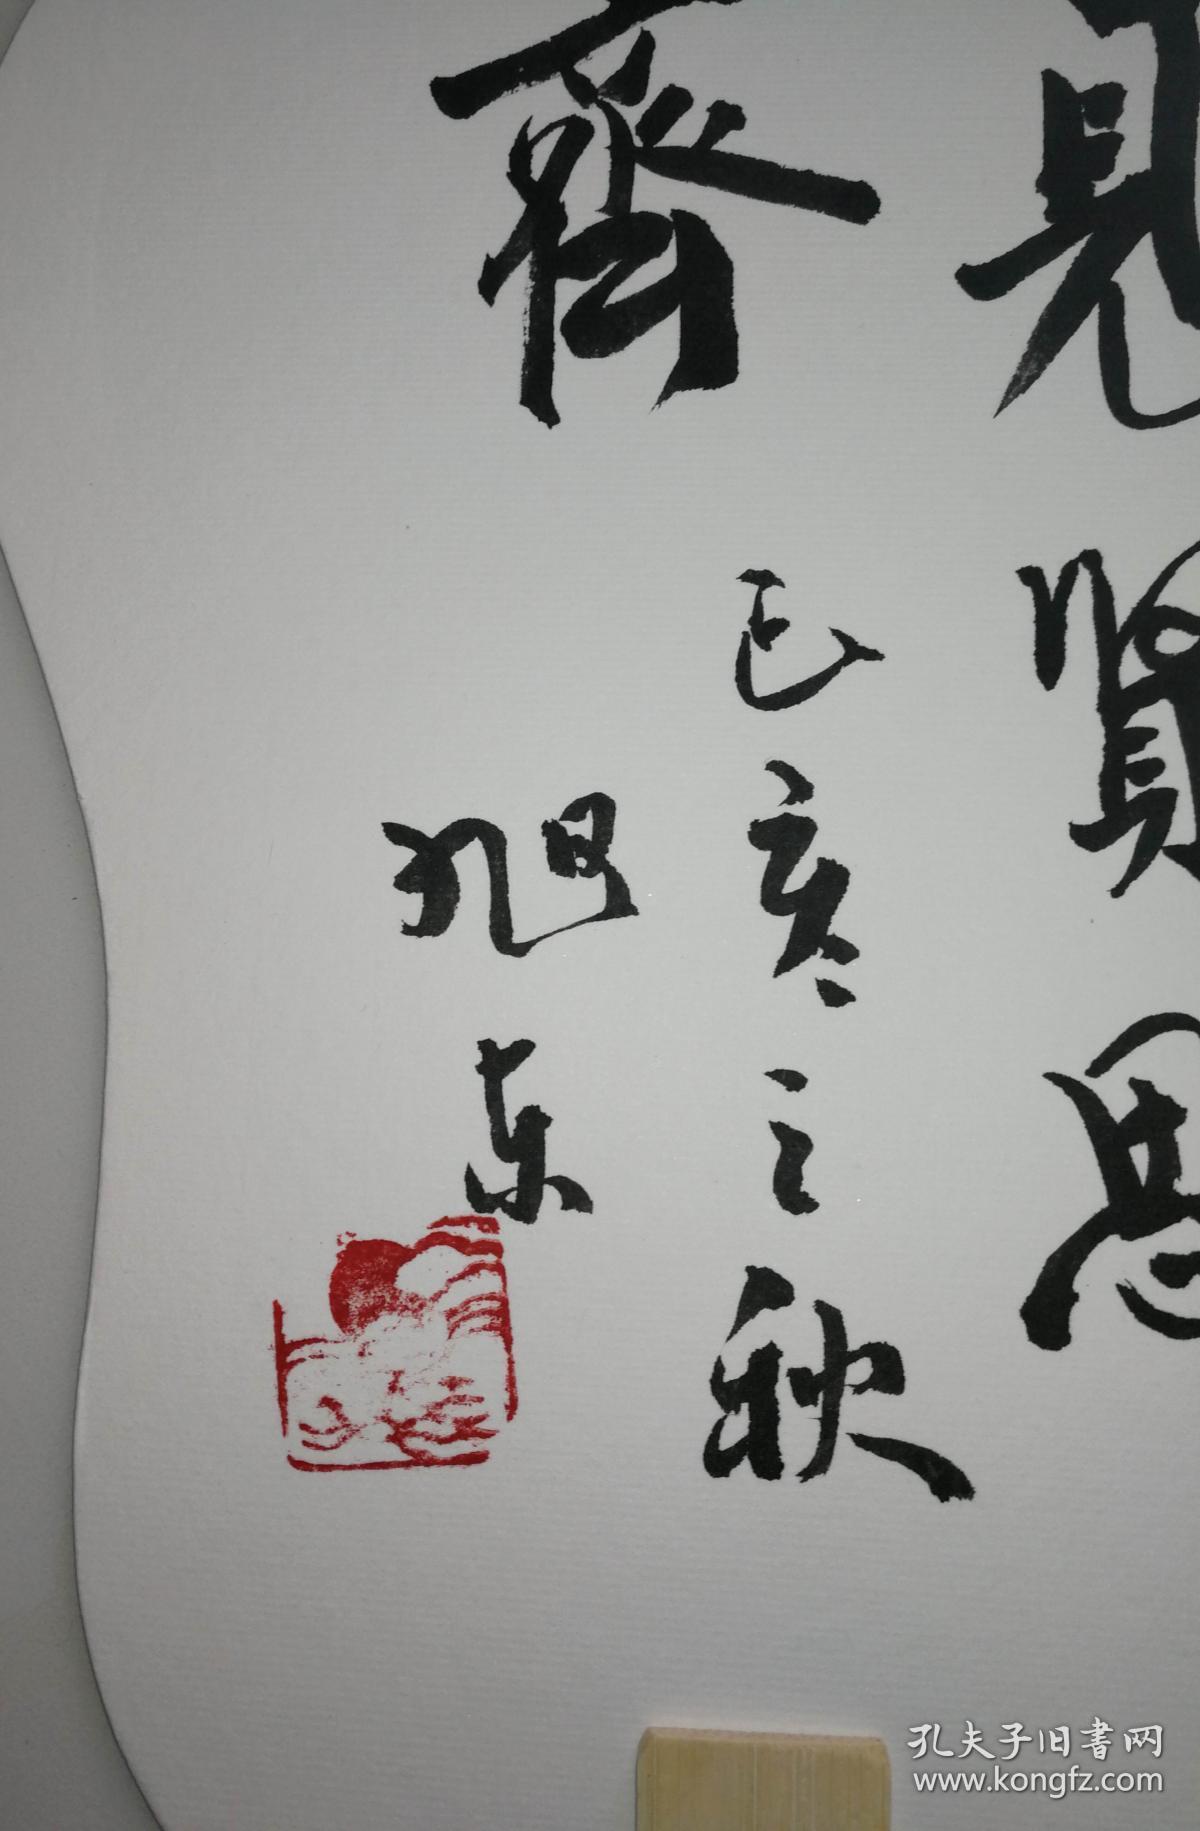 見賢思
齊
己亥之秋
旭东
孔夫子旧書网
www.kongfz.com